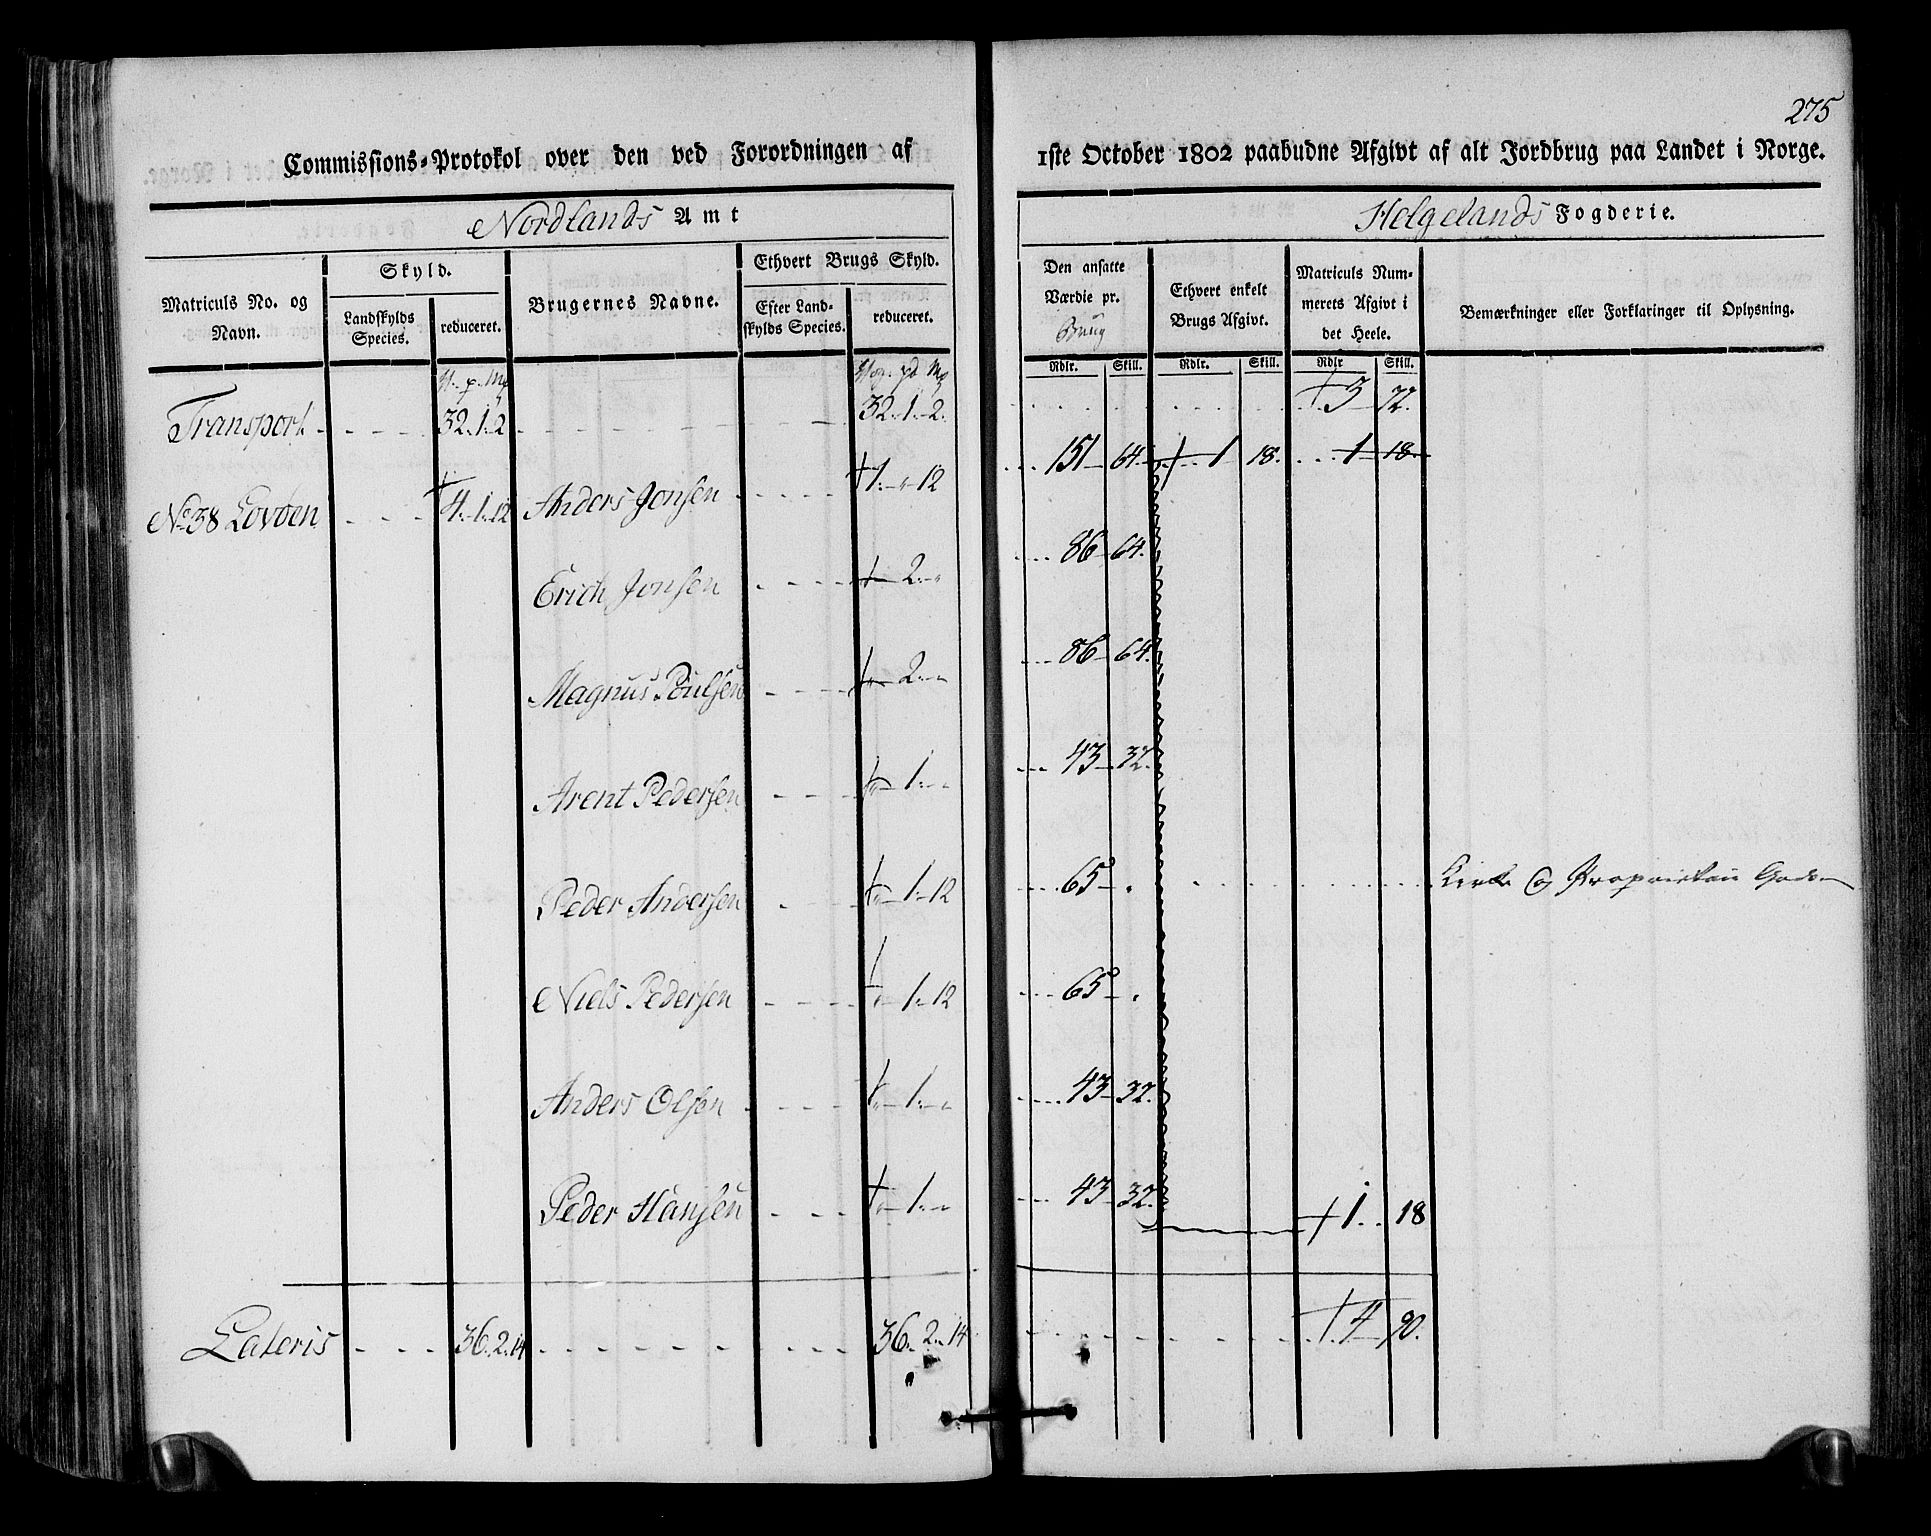 275
Commissions-Protokol over den ved Forordningen af 1ste October 1802 paabudne Afgivt af alt Jordbrug paa Landet i Norge.
Nordlands Amt Helgelands Fogderie.
Matriculs No. og Navn.
Skyld.
Landskylds Species.
reduceret.
Brugernes Navne.
Ethvert Brugs Skyld.
Efter Landskylds Species.
reduceret.
Den ansatte Værdie pr. Brug
Ethvert enkelt Brugs Afgivt.
Matriculs Nummerets Afgivt i det Heele.
Bemærkninger eller Forklaringer til Oplysning.
Rdlr. Skill. Rdlr. Skill. Rdlr Skill.
Transport 32.1.2 32.1.2. 3 72.
No 38 Lovöen 4.1.12 Anders Jonsen 1. 12 151 64. 1 18. 1 18.
Erich Jonsen 2 86 64.
Magnus Poulsen 2 86 64.
Arent Pedersen 1 43 32.
Peder Andersen 1 12 65 Kirke og Proprietair Gods
Niels Pedersen 1 12 65
Anders Olsen 1 43 32.
Peder Hansen 1 43 32. 1 18
Lateris 36.2.14 36.2.14 4 90.